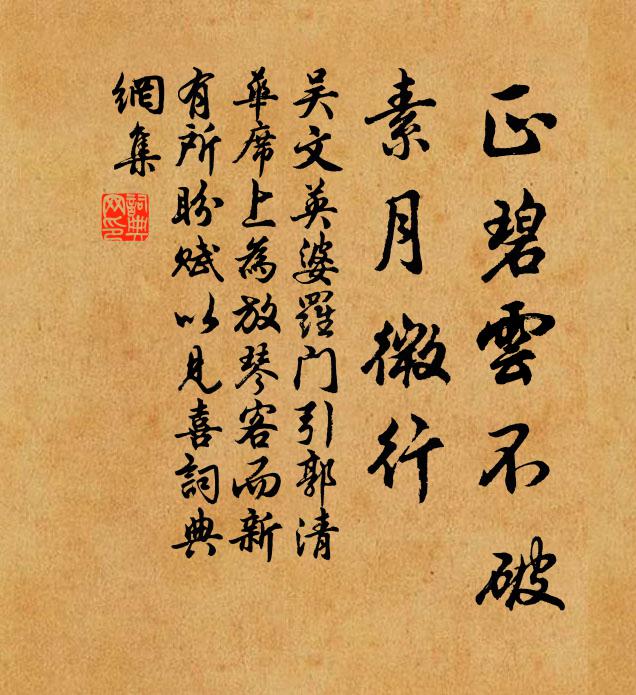 正碧雲不破
素月微行
吴文英婆羅门引郭清
華席上為放琴客而新
有所盼赋以见喜詞典
網集
詞典
网印